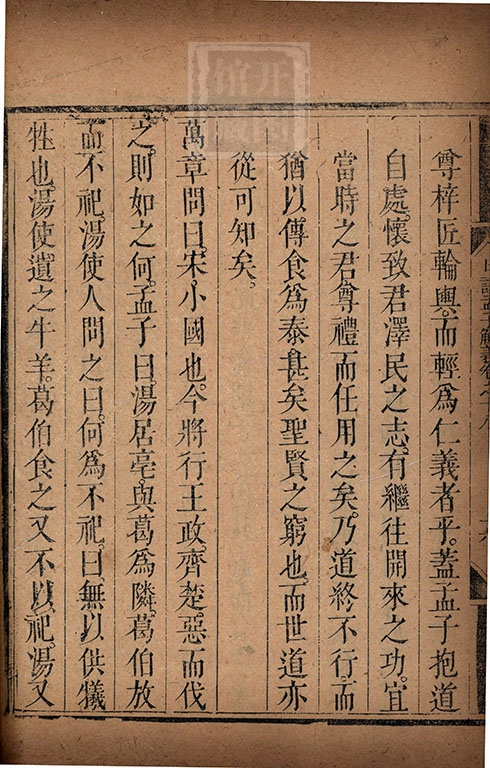 尊梓匠輪輿而輕爲仁義者乎。蓋孟子抱道
自處。懷致君澤民之志。有繼往開來之功。宜
當時之君尊禮而任用之矣。乃道終不行。而
猶以傳食爲泰。甚矣聖賢之窮也。而世道亦
從可知矣。
萬章問曰。宋。小國也。今將行王政。齊楚。惡而伐
之。則如之何。孟子曰。湯居亳。與葛爲隣。葛伯放
而不祀。湯使人問之曰。何爲不祀。曰。無以供犧
牲也。湯使遺之牛羊。葛伯食之。又不以祀。湯又